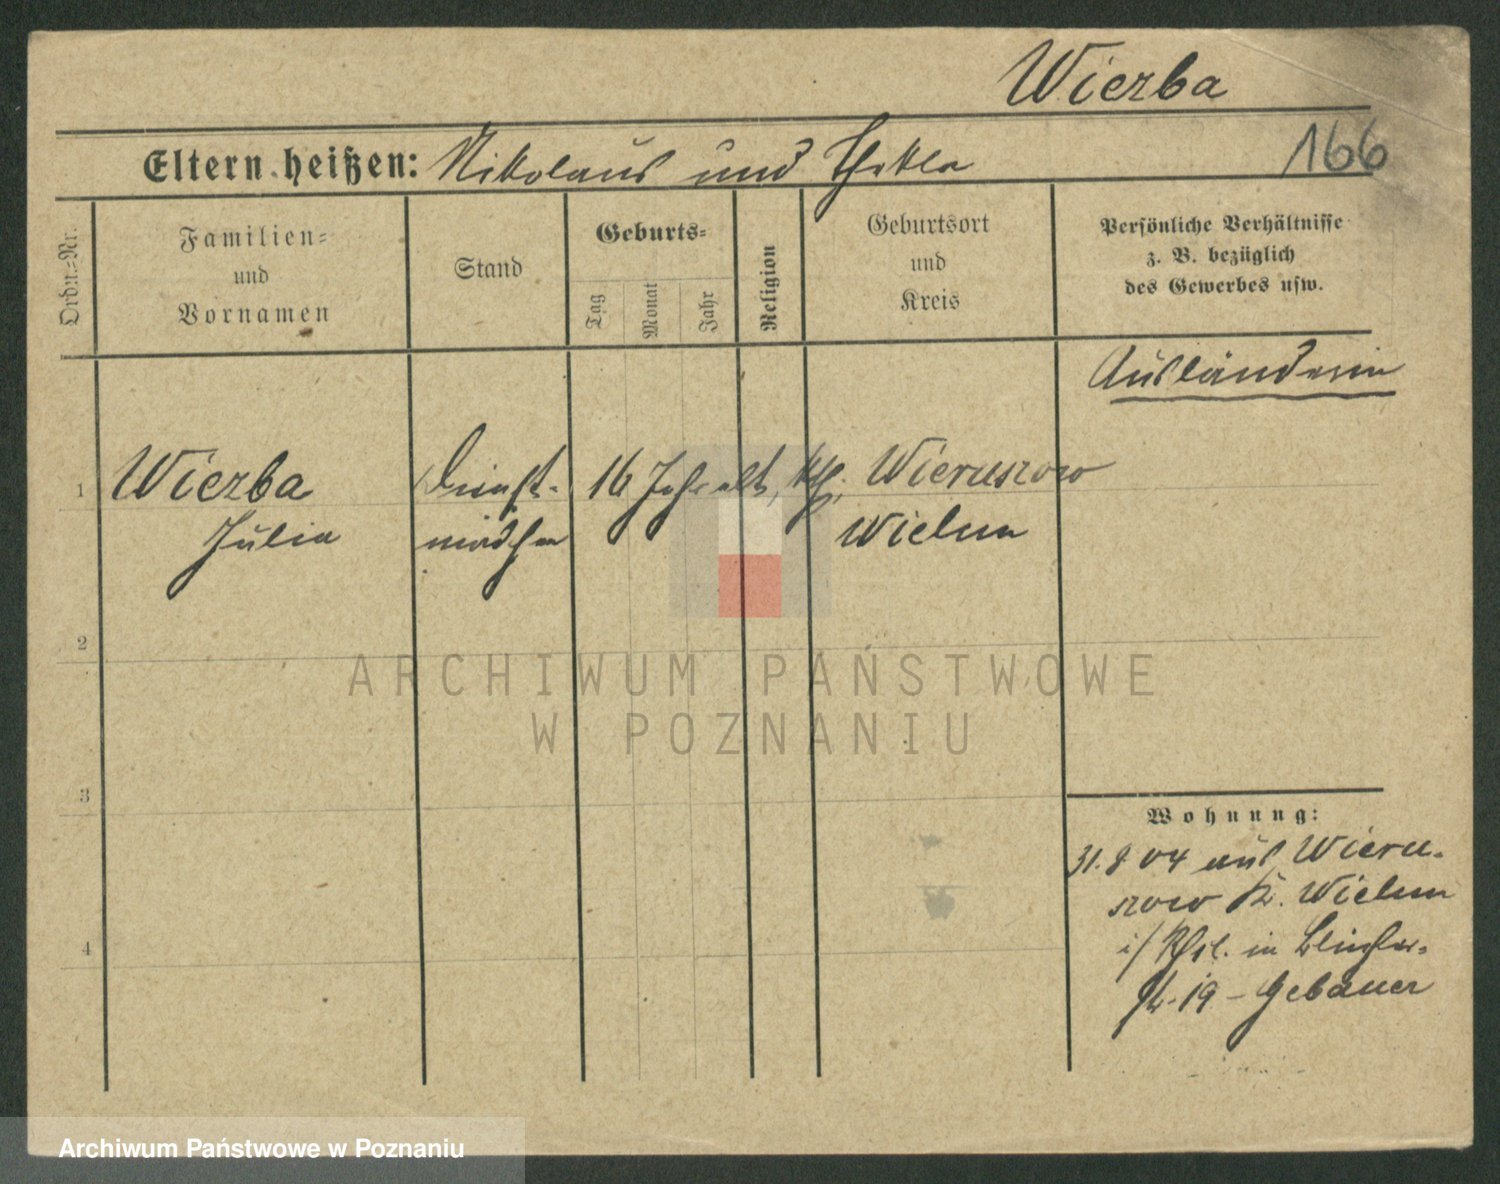 Wierzba
166
Eltern heißen: Nikolaus und Thekla
Ordn.=Nr.
Familien=
und
Vornamen
Stand
Geburts=
Tag
Monat
Jahr
Religion
Geburtsort
und
Kreis
Persönliche Verhältnisse
z. B. bezüglich
des Gewerbes usw.
Ausländerin
1 Wierzba Dienst- 16 Jahr alt, kth. Wieruszow
Julia mädchen Wielun
2
3
4
Wohnung:
31.8 04 aus Wieru-
szow K. Wielun
i/ in
19 - Gebauer
ARCHIWUM PAŃSTWOWE
W POZNANIU
Archiwum Państwowe w Poznaniu